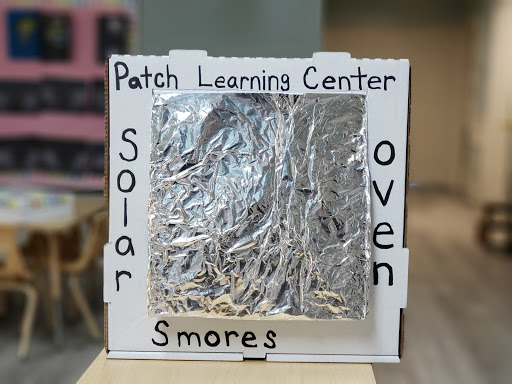 Patch Learning Center
Solar
oven
Smores